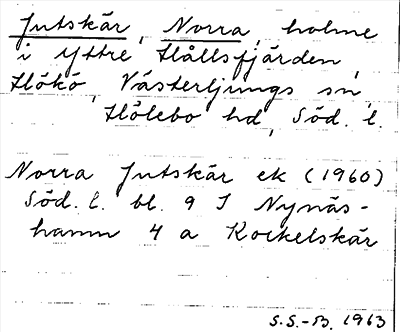 Jutskär, Norra, holme
i Yttre Hållsfjärden,
Hökö, Västerljungs sn,
Hölebo hd, Söd. l.
Norra Jutskär ek (1960)
Söd. l. bl. 9 I Nynäs-
hamn 4 a Kockelskär
S.S.-B. 1963